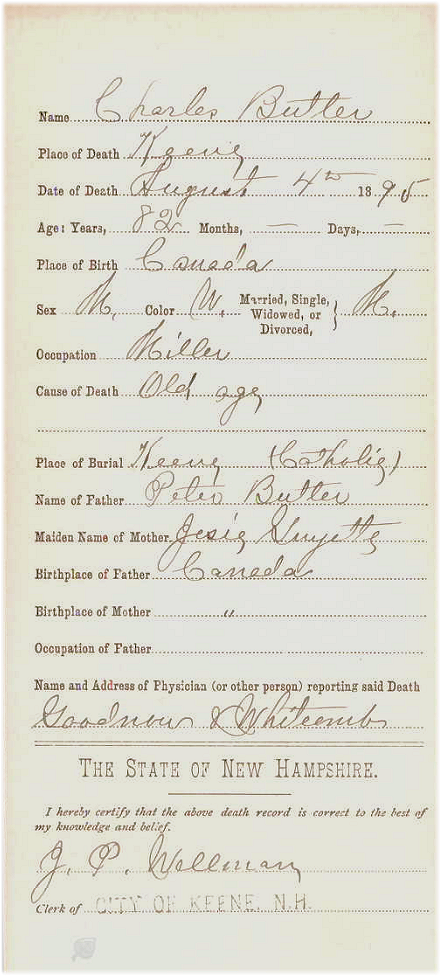 Name Charles Butler
Place of Death Keene
Date of Death August 4th 1895
Age: Years, 82 Months, — Days, —
Place of Birth Canada
Sex M. Color W. Married, Single, Widowed, or Divorced, } M.
Occupation Miller
Cause of Death Old age
Place of Burial Keene (Catholic)
Name of Father Peter Butler
Maiden Name of Mother Jesie Guyette
Birthplace of Father Canada
Birthplace of Mother "
Occupation of Father
Name and Address of Physician (or other person) reporting said Death
Goodnow & Whitcomb
THE STATE OF NEW HAMPSHIRE.
I hereby certify that the above death record is correct to the best of
my knowledge and belief.
J. P. Wellman
Clerk of CITY OF KEENE, N.H.